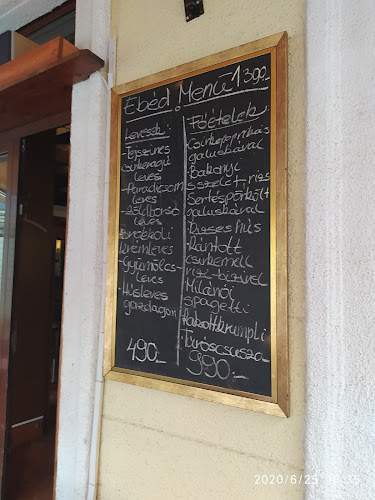 Ebéd Menü 1390.-
Levesek:
- Tejszínes
csirkeragu
leves
- Paradicsom
leves
- Zöldborsó
leves
Brokkoli
krémleves
- Gyümölcs-
leves
- Húsleves
gazdagon
490.-
Főételek:
Csirkepaprikás
galuskával
Bakonyi
szelet, rizs
Sertéspörkölt
galuskával
Dieses hús
Rántott
csirkemell
rizi-bizivel
Milánói
spagetti
Rakottkrumpli
Túróscsusza
990.-
2020/6/25